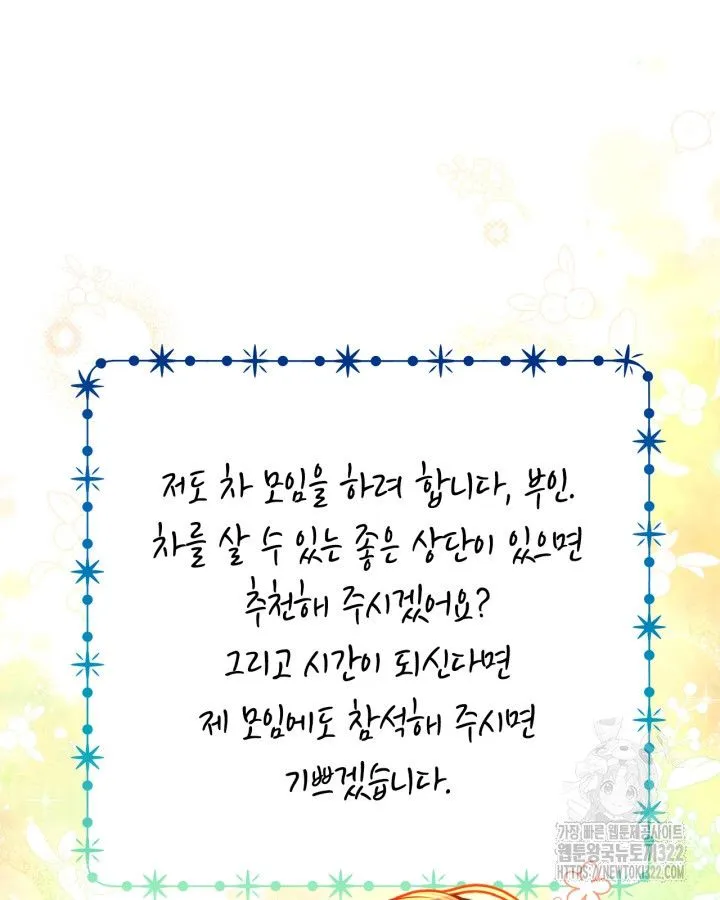 저도 차 모임을 하려 합니다, 부인.
차를 살 수 있는 좋은 상단이 있으면
추천해 주시겠어요?
그리고 시간이 되신다면
제 모임에도 참석해 주시면
기쁘겠습니다.
가장 빠른 웹툰제공사이트
웹툰왕국뉴토끼322
HTTPS://NEWTOKI322.COM